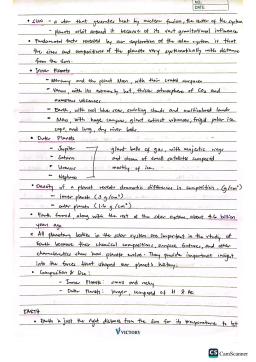 NO.
DATE:
• SUN - a star that generates heat by nuclear fusion, the center of the system
planets orbit around it because of its vast gravitational influence
• Fundamental facts revealed by our exploration of the solar system is that
the sizes and compositions of the planets vary systematically with distance
from the Sun.
• Inner Planets
- Mercury and the planet Moon, with their cratered surfaces
- Venus, with its extremely hot, thick atmosphere of CO2 and
numerous volcanoes
- Earth, with cool blue seas, swirling clouds and multicolored lands
- Mars, with huge canyons, giant extinct volcanoes, frigid polar ice
caps, and long, dry river beds
• Outer Planets
- Jupiter giant balls of gas, with majestic rings
- Saturn and dozens of small satellites composed
- Uranus mostly of ice.
- Neptune
• Density of a planet reveals dramatic differences in composition. (g/cm³)
- inner planets (3 g/cm³)
- outer planets (1.6 g/cm³)
• Earth formed along with the rest of the solar system about 4.6 billion
years ago
• All planetary bodies in the solar system are important in the study of
Earth because their chemical compositions, surface features, and other
characteristics show how planets evolve. They provide important insight
into the forces that shaped our planet's history.
• Composition & Size:
- Inner Planets: small and rocky
- Outer Planets: larger, composed of H & He
EARTH
• Earth is just the right distance from the Sun for its temperature to let
VICTORY
CS CamScanner